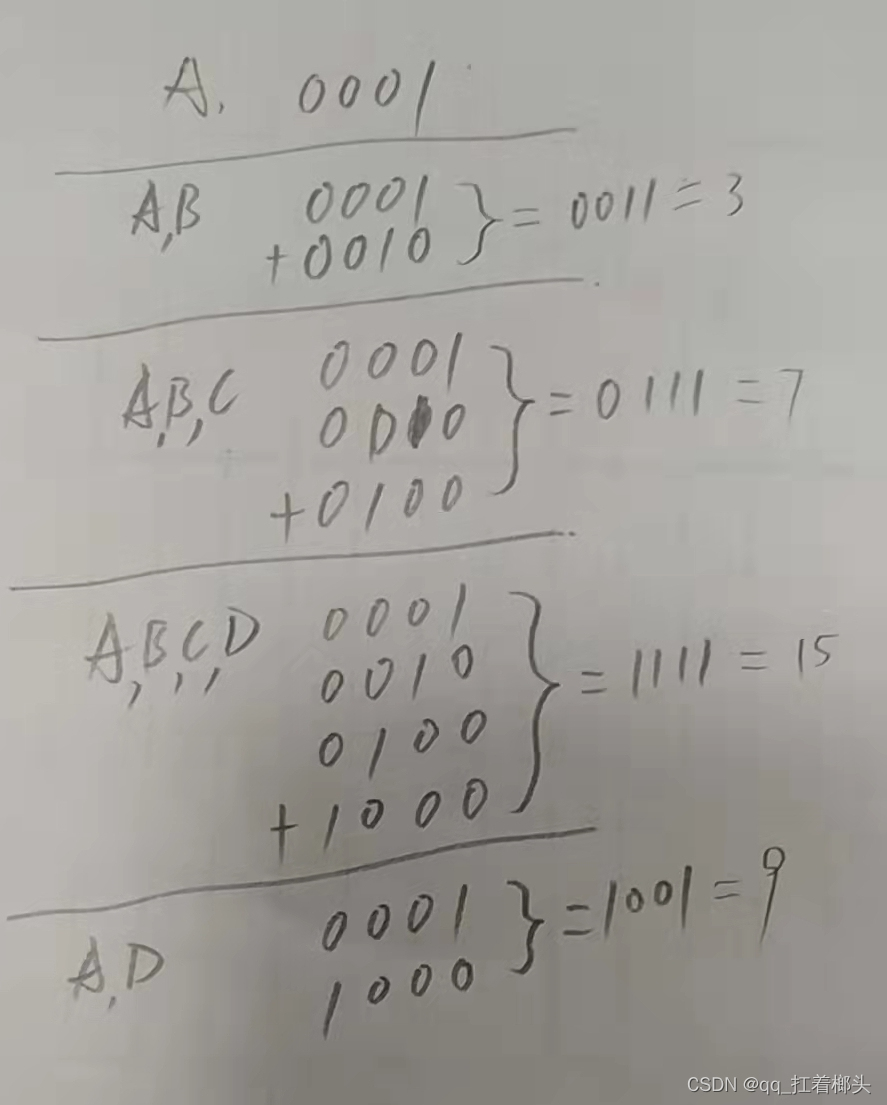 A. 0001
A,B 0001 } = 0011 = 3
+0010
A,B,C 0001
0010 } = 0111 = 7
+0100
A,B,C,D 0001
0010 } = 1111 = 15
0100
+1000
A,D 0001 } = 1001 = 9
1000
CSDN @qq_扛着榔头